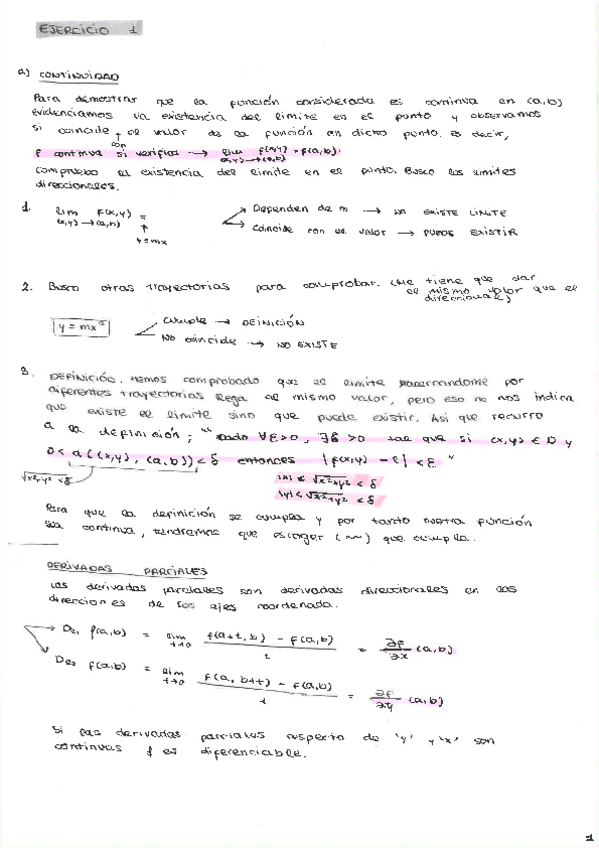 EJERCICIO 1
a) CONTINUIDAD
Para demostrar que la función considerada es continua en (a,b)
evidenciamos la existencia del límite en el punto y observamos
si coincide con el valor de la función en dicho punto. es decir,
f continua si verifica → lim (x,y)→(a,b) f(x,y) = f(a,b).
Compruebo la existencia del límite en el punto. Busco los límites
direccionales.
1. lim (x,y)→(a,b) F(x,y) =
↑
y=mx
Dependen de m → NO EXISTE LIMITE
Coincide con el valor → PUEDE EXISTIR
2. Busco otras trayectorias para comprobar. (Me tiene que dar
el mismo valor que el
direccional)
y = mx²
Cumple → DEINICIÓN
No coincide → NO EXISTE
3. DEFINICIÓN. Hemos comprobado que el limite por
diferentes trayectorias llega al mismo valor, pero eso no nos indica
que existe el límite sino que puede existir. Así que recurro
a la definición; " ∀ε>0, ∃δ>0 tal que si (x,y) ∈ D y
0 < d((x,y), (a,b)) < δ entonces |f(x,y) - l| < ε "
√x²+y² < δ
|x| ≤ √x²+y² < δ
|y| < √x²+y² < δ
Para que la definición se cumpla y por tanto nuestra función
sea continua, tendremos que escoger (~~) que cumpla.
DERIVADAS PARCIALES
Las derivadas parciales son derivadas direccionales en las
direcciones de los ejes coordenada.
De₁ f(a,b) = lim t→0 f(a+t, b) - f(a,b) / t = ∂f/∂x (a,b)
De₂ f(a,b) = lim t→0 f(a, b+t) - f(a,b) / t = ∂f/∂y (a,b)
Si las derivadas parciales respecto de 'y' y 'x' son
continuas f es diferenciable.
1